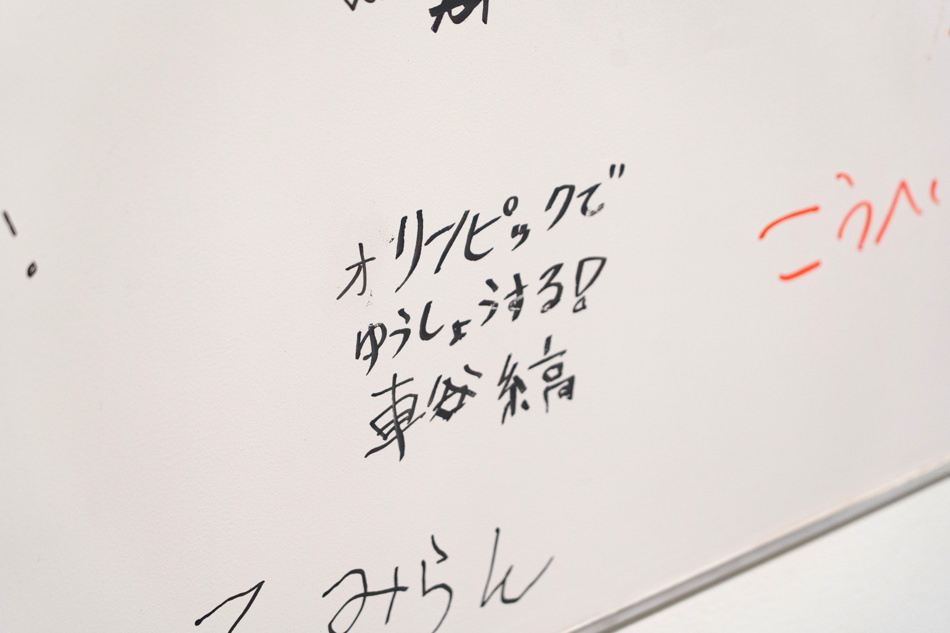 オリンピックで
ゆうしょうする!
車谷 縞
こうへい
みらん